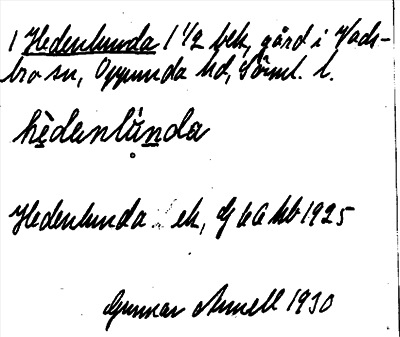 1 Hedenlunda 1 1/2 bek, gård i Vads-
bro sn, Oppunda hd, Söml. l.
hèdenlùnda
Hedenlunda ek, G 6A hb 1925
Gunnar Arnell 1930